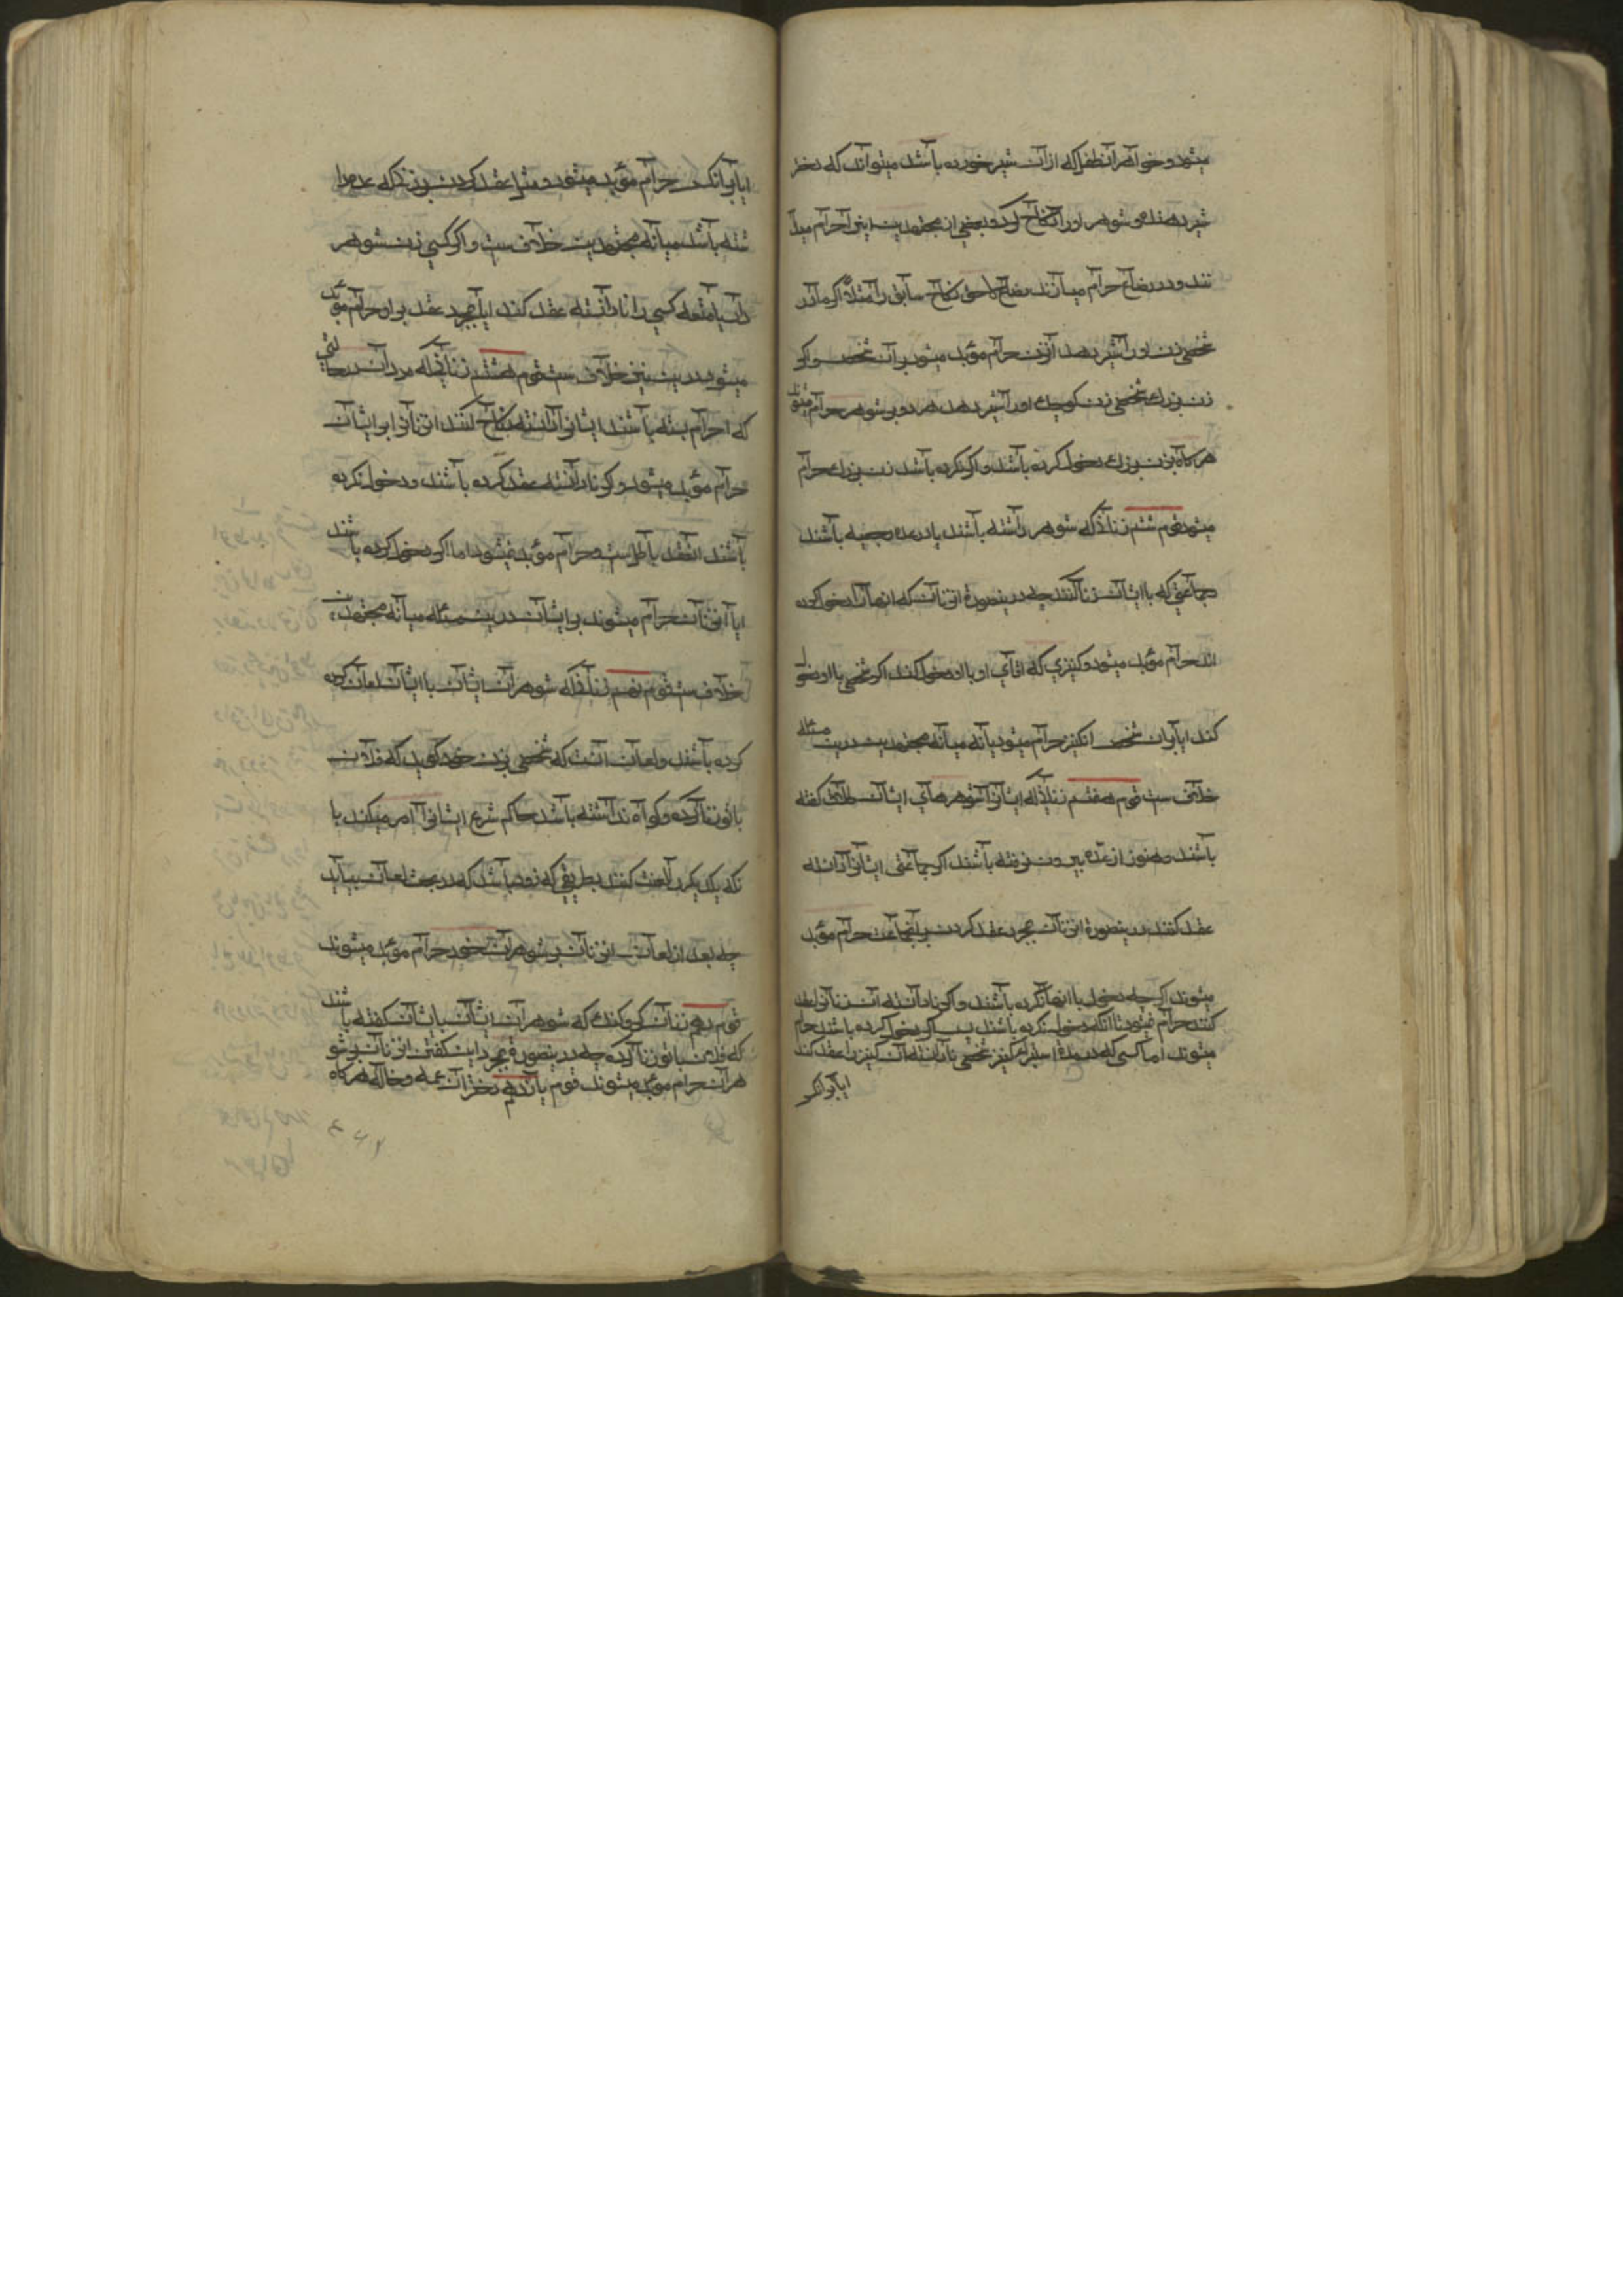 میشود و خواهر آن طفل که از آن شیر خورده باشد میتواند که دختر
شیر دهنده و شوهر او را نکاح کرد و بعضی از مجتهدین اینرا حرام میدا
نند و در رضاع حرام میسازند رضاع لاحق نکاح سابق را مثلاً اگر مادر
شخصی زن او را شیر دهد آنزن حرام مؤبد میشود بر آن شخص و اگر
زن بزرك شخصی زن کوچك او را شیر دهد هر دو بر شوهر حرام میشوند
هرگاه بزن بزرك دخول کرده باشد و اگر نکرده باشد زن بزرك حرام
میشود قوم ششم زنانیکه شوهر داشته باشند یا در عده رجعیه باشند
جماعتی که با ایشان زنا کنند چه در ینصورة انزنان که انها را دخول کرده
اند حرام مؤبد میشود و کنیزی که اقای او با او دخول کند اگر شخصی با او دخول
کند ایا بران شخص انکنیز حرام میشود یا نه میانه مجتهدین درین مسئله
خلاف ست قوم هفتم زنانیکه ایشانرا شوهرهای ایشان طلاق گفته
باشند و هنوز از عدّه بیرون نرفته باشند اگر جماعتی ایشانرا دانسته
عقد کنند درینصورة انزنان بمجرد عقد کردن بر انجماعت حرام مؤبد
میشوند اگرچه دخول با انها نکرده باشند و اگر نادانسته آن زنانرا عقد
کنند حرام نمیشود تا انکه دخول نکرده باشند پس اگر دخول کرده باشند حرام
میشوند اما کسی که در مدة استبراء کنیز شخصی نادانسته آن کنیز را عقد کند
ایا بر انکس
ایا بر انکس حرام مؤبد میشود و مثل عقد کردن بر زنیکه عده دا
شته باشد میانه مجتهدین خلاف ست و اگر کسی زن شوهر
دار یا متعه کسی را نادانسته عقد کند ایا بمجرد عقد بر او حرام مؤبد
میشود درین نیز خلاف ست قوم هشتم زنانیکه مردان در حالتی
که احرام بسته باشند ایشانرا دانسته نکاح کنند انزنان بر ایشان
حرام مؤبد میشود و اگر نادانسته عقد کرده باشند و دخول نکرده
باشند انعقد باطل ست و حرام مؤبد نمیشود اما اگر دخول کرده باشند
ایا انزنان حرام میشوند بر ایشان درین مسئله میانه مجتهدین
خلاف ست قوم نهم زنانیکه شوهران ایشان با ایشان لعان کرده
کرده باشند و لعان انست که شخصی بزن خود گوید که فلان
با تو زنا کرده و گواه نداشته باشد حاکم شرع ایشانرا امر میکند با
نکه یکدیگر را لعنت کنند بطریقی که زود باشد که در بحث لعان بیاید
چه بعد از لعان انزنان بر شوهران خود حرام مؤبد میشوند
قوم دهم زنان کر و کنك که شوهران ایشان بایشان گفته باشند
که فلان با تو زنا کرده چه در ینصورة بمجرد این گفتن انزنان بر شو
هران حرام مؤبد میشوند قوم یازدهم دختران عمه و خاله هرگاه